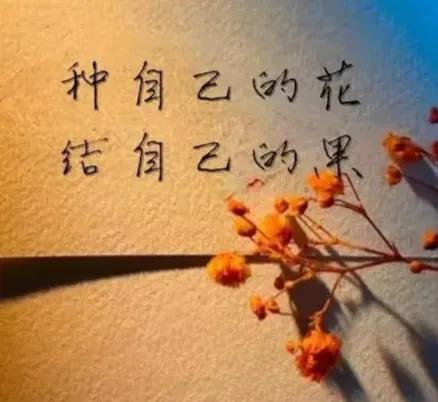 种自己的花
结自己的果